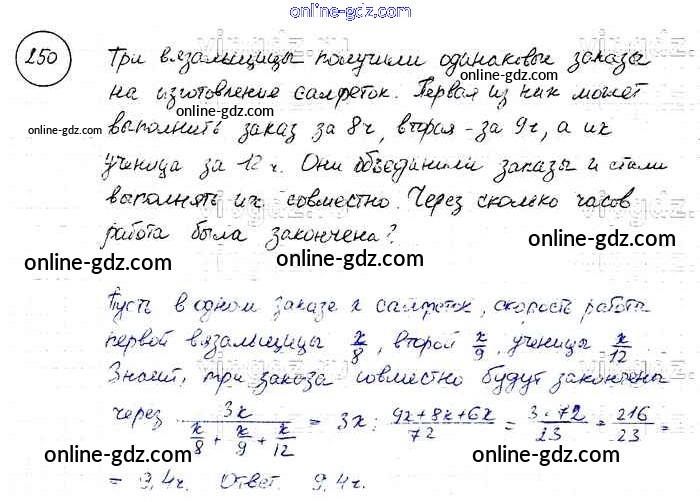 online-gdz.com
250
Три вязальщицы получили одинаковые заказы
online-gdz.com
на изготовление салфеток. Первая из них может
online-gdz.com
online-gdz.com
выполнить заказ за 8ч, вторая - за 9ч, а их
online-gdz.com
ученица за 12 ч. Они объединили заказы и стали
выполнять их совместно. Через сколько часов
работа была закончена?
online-gdz.com
online-gdz.com
online-gdz.com
Пусть в одном заказе x салфеток, скорость работы
первой вязальщицы x/8, второй x/9, ученицы x/12.
Значит, три заказа совместно будут закончены
через 3x/(x/8 + x/9 + x/12) = 3x : (9x+8x+6x)/72 = 3·72/23 = 216/23 =
= 9,4ч. Ответ. 9,4ч.
online-gdz.com
online-gdz.com
online-gdz.com